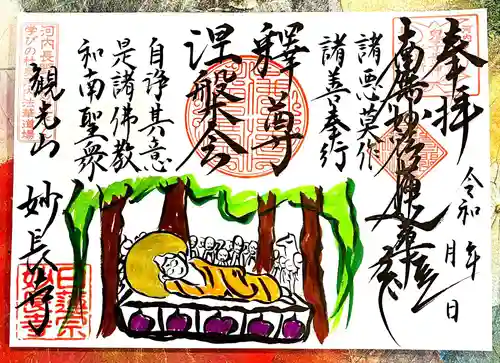 奉拝
令和 年 月 日
南無妙法蓮華経
諸悪莫作
諸善奉行
釋尊
涅槃会
自浄其意
是諸佛教
和南聖衆
観光山
妙長寺
日蓮宗
妙長寺